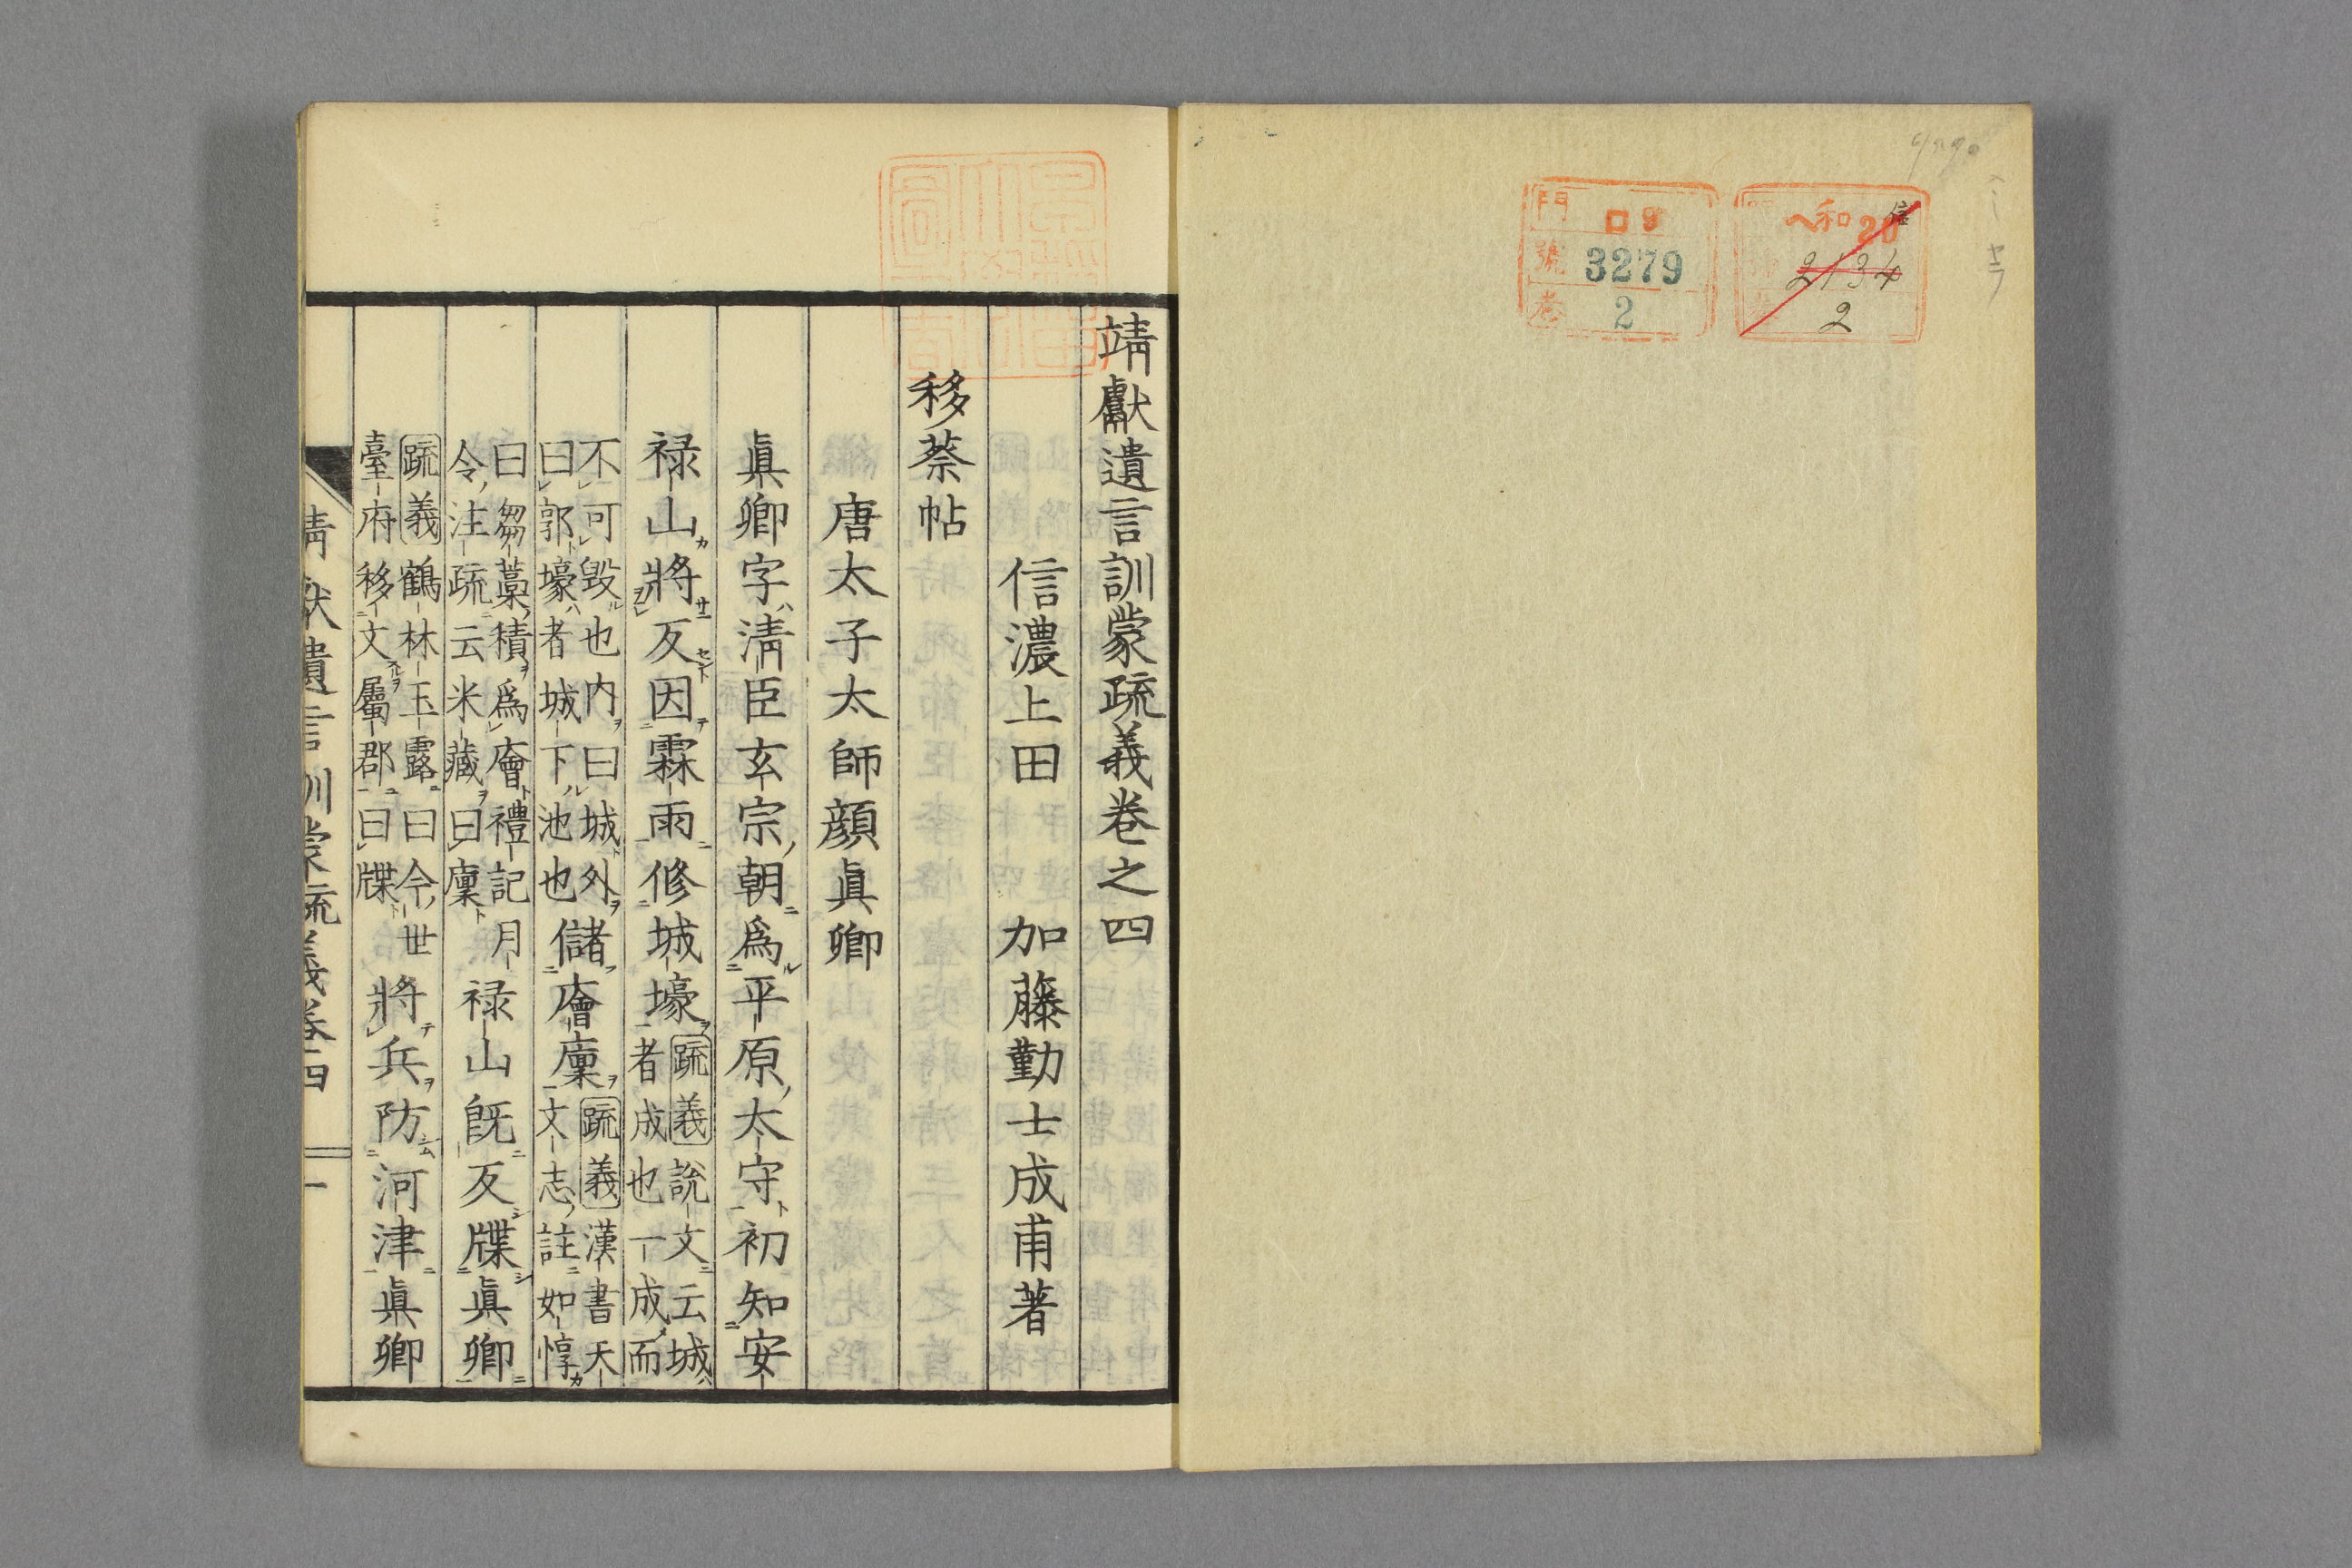 門 口9
號 3279
巻 2
ヘ和20
信
2134
2
靖獻遺言訓蒙疏義卷之四
信濃上田 加藤勤士成甫著
移蔡帖
唐太子太師顔眞卿
眞卿字淸臣玄宗朝爲平原太守初知安
禄山將反因霖雨修城壕疏義說文云城
者成也一成而
不可毀也内曰城外
曰郭壕者城下池也
儲廥廩疏義漢書天
文志註如惇
曰芻藁積爲廥禮記月
令注疏云米藏曰廩
禄山旣反牒眞卿
疏義鶴林玉露曰今世
臺府移文屬郡曰牒
將兵防河津眞卿
靖献遺言訓蒙疏義卷四 一